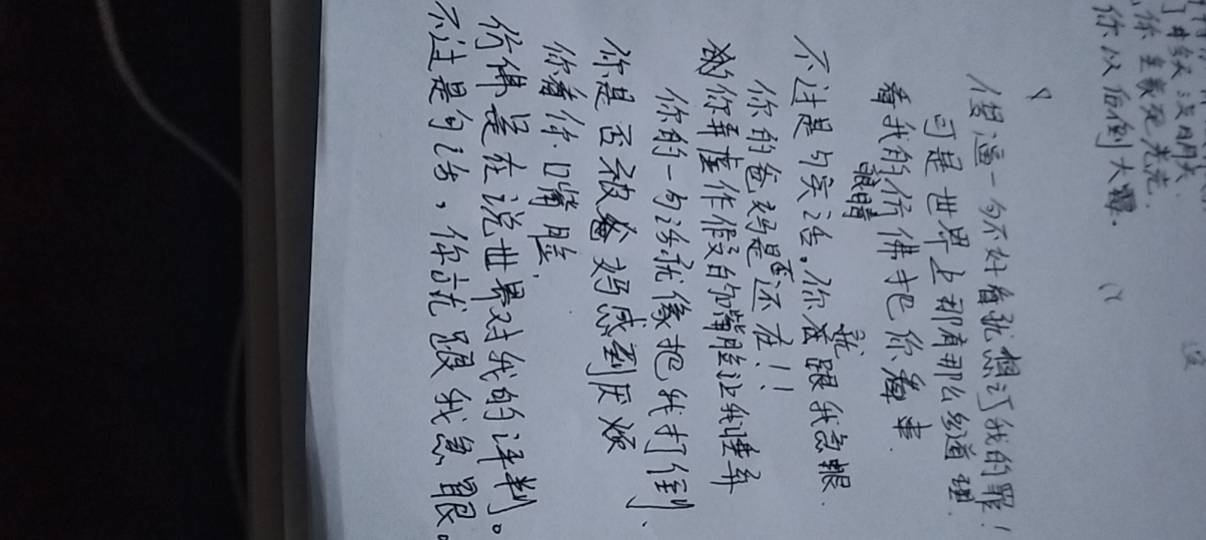 没明天
你全家死光光.
你以后倒大霉.
傻逼一句不好看就想订我的罪!
可是世界上那有那么多道理.
看我的眼睛仿佛把你
不过是句实话。你就跟我急眼.
你的爸妈是否还在!!
你弄虚作假的嘴脸让我唾弃
你的一句话就像把我打倒、
你是否被爸妈感到厌烦
你看你口嘴脸,
仿佛是在说世界对我的评判。
不过是句话,你就跟我急眼。